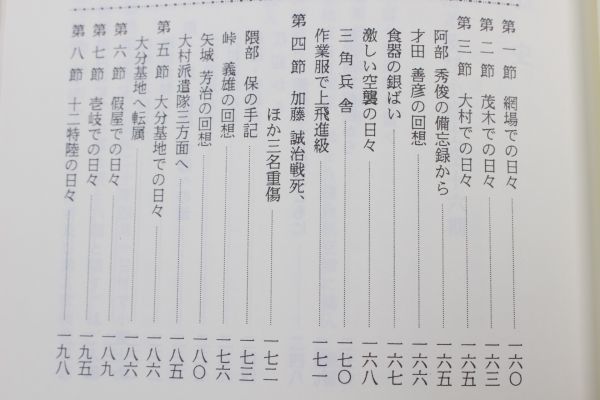 第一節 網場での日々 一六〇
第二節 茂木での日々 一六三
第三節 大村での日々 一六五
阿部 秀俊の備忘録から 一六五
才田 善彦の回想 一六六
食器の銀ばい 一六七
激しい空襲の日々 一六八
三角兵舎 一七〇
作業服で上飛進級 一七一
第四節 加藤 誠治戦死、
ほか三名重傷 一七二
隈部 保の手記 一七三
峠 義雄の回想 一七六
矢城 芳治の回想 一八〇
大村派遣隊三方面へ 一八五
第五節 大分基地での日々 一八六
大分基地へ転属 一八六
第六節 假屋での日々 一八九
第七節 壱岐での日々 一九五
第八節 十二特陸の日々 一九八